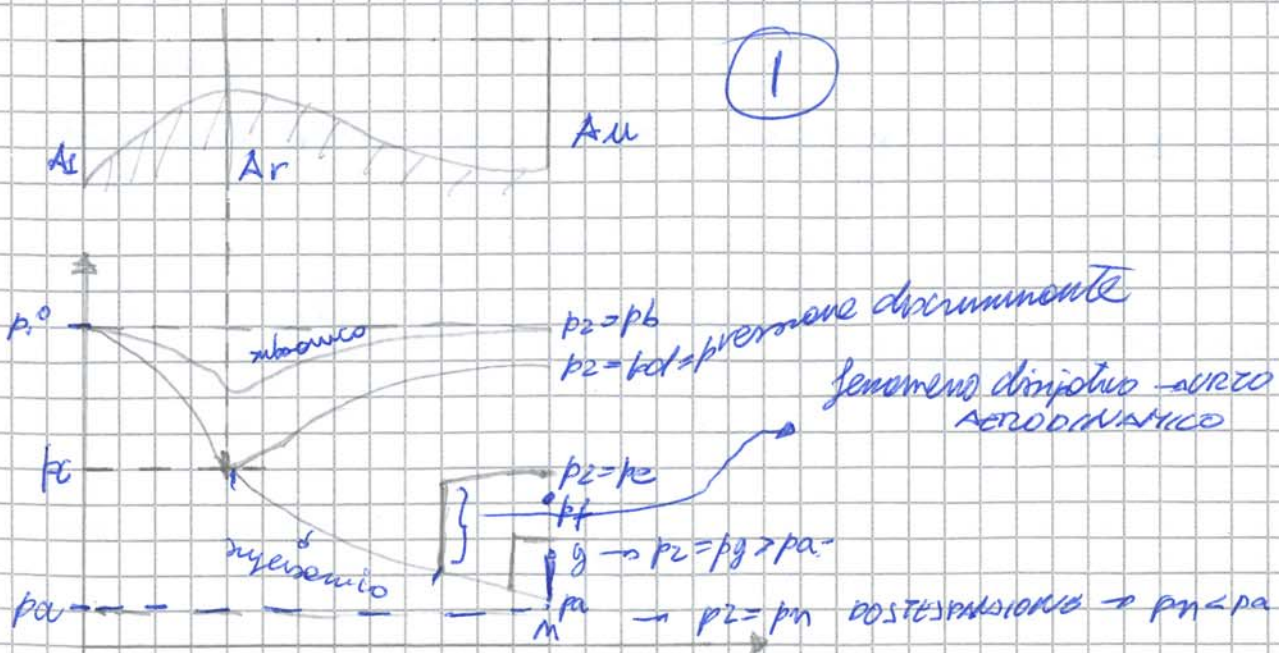 1
A1
Ar
Au
p1°
subsonico
p2=pb
p2=pd=pressione discriminante
fenomeno dissipativo → URTO
AERODINAMICO
pc
p2=pe
pf
supersonico
g → p2=pg>pa
pa
pa
n
→ p2=pn POSTESPANSIONE → pn<pa